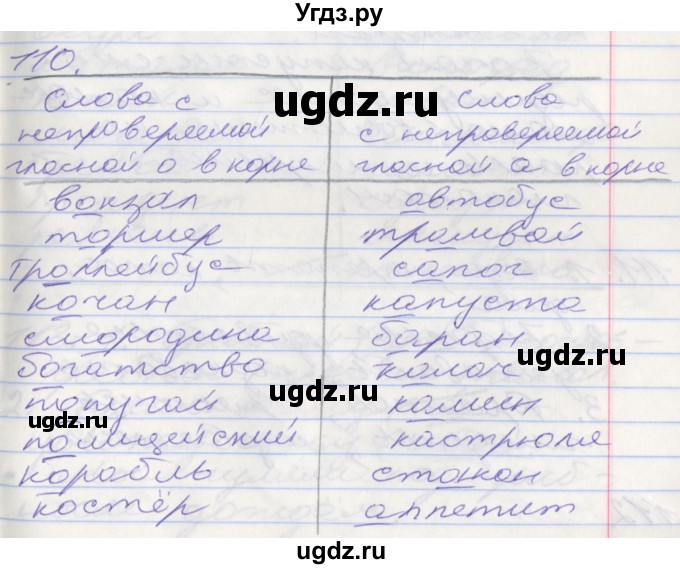 Угдз.ру
110.
Слова с непроверяемой гласной о в корне
Слова с непроверяемой гласной а в корне
вокзал автобус
торшер трамвай
троллейбус сапог
кочан капуста
смородина баран
богатство калач
попугай камин
полицейский кастрюля
корабль стакан
костёр аппетит
ugdz.ru
ugdz.ru
ugdz.ru
ugdz.ru
ugdz.ru
ugdz.ru
ugdz.ru
ugdz.ru
ugdz.ru